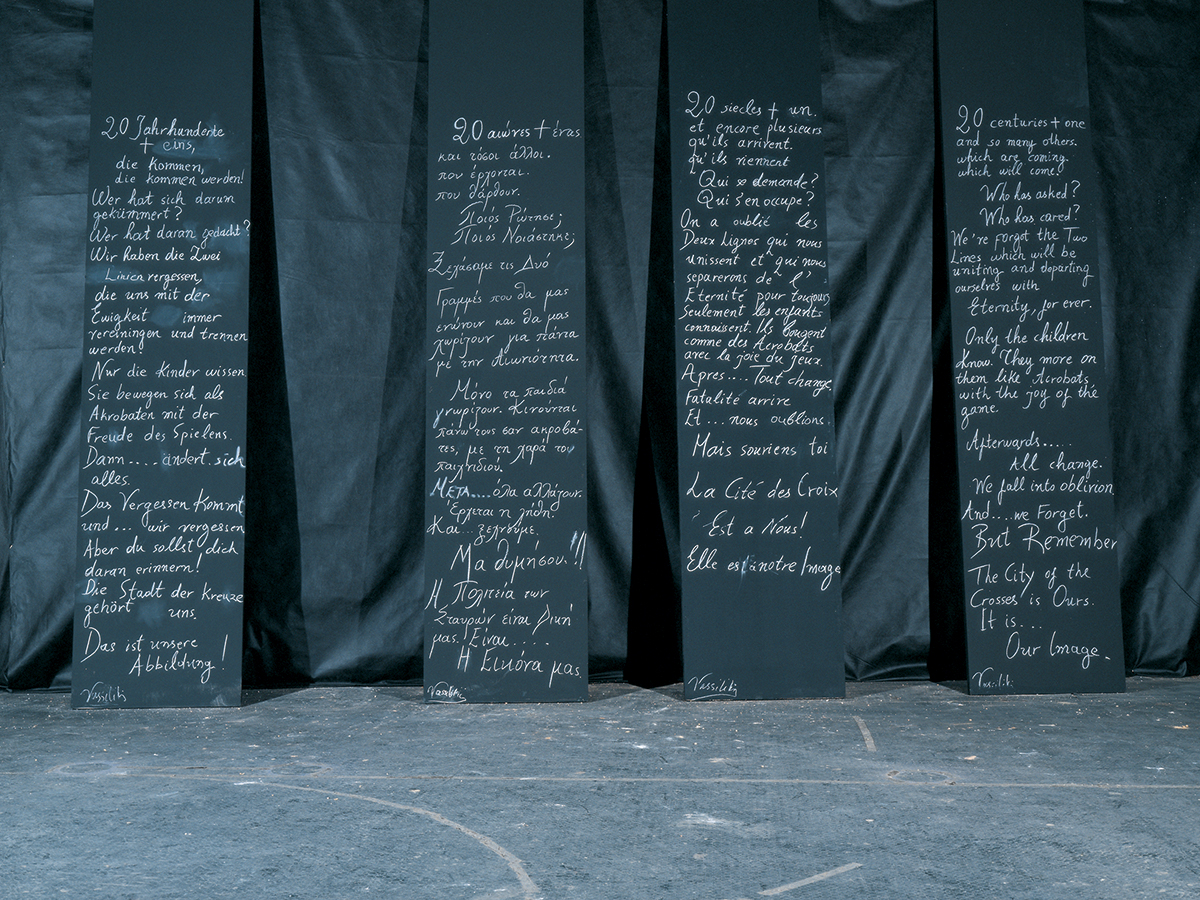 20 Jahrhunderte
+ eins,
die kommen,
die kommen werden!
Wer hat sich darum
gekümmert?
Wer hat daran gedacht?
Wir haben die Zwei
Linien vergessen,
die uns mit der
Ewigkeit immer
vereiningen und trennen
werden!
Nur die Kinder wissen
Sie bewegen sich als
Akrobaten mit der
Freude des Spielens.
Dann.... ändert sich
alles.
Das Vergessen Kommt
und... wir vergessen
Aber du sollst dich
daran erinnern!
Die Stadt der Kreuze
gehört uns.
Das ist unsere
Abbildung!
Vassiliki
20 αιώνες + ένας
και τόσοι άλλοι.
που έρχονται.
που θάρθουν.
Ποιός Ρώτησε;
Ποιός Νοιάστηκε;
Ξεχάσαμε τις Δυό
Γραμμές που θα μας
ενώνουν και θα μας
χωρίζουν για πάντα
με την Αιωνιότητα.
Μόνο τα παιδιά
γνωρίζουν. Κινούνται
πάνω τους σαν ακροβά-
τες, με τη χαρά του
παιχνιδιού.
ΜΕΤΑ....όλα αλλάζουν.
Έρχεται η λήθη.
Και... ξεχνούμε.
Μα θυμήσου!!
Η Πολιτεία των
Σταυρών είναι Δική
μας! Είναι.....
Η Εικόνα μας.
Vassiliki
20 siecles + un.
et encore plusieurs
qu'ils arrivent.
qu'ils viennent
Qui se demande?
Qui s'en occupe?
On a oublié les
Deux Lignes qui nous
unissent et qui nous
separerons de l'
Eternité pour toujours
Seulement les enfants
connaissent. Ils bougent
comme des Acrobats
avec la joie du jeux.
Apres.... Tout change.
Fatalité arrive
Et... nous oublions.
Mais souriens toi
La Cité des Croix
Est a Nous!
Elle est notre Image
Vassiliki
20 centuries + one
and so many others.
which are coming.
which will come!
Who has asked?
Who has cared?
We're forgot the Two
Lines which will be
uniting and departing
ourselves with
Eternity, for ever.
Only the children
know. They more on
them like Acrobats
with the joy of the
game.
Afterwards.....
All change.
We fall into oblivion
And....we Forget.
But Remember
The City of the
Crosses is Ours.
It is...
Our Image.
Vassiliki